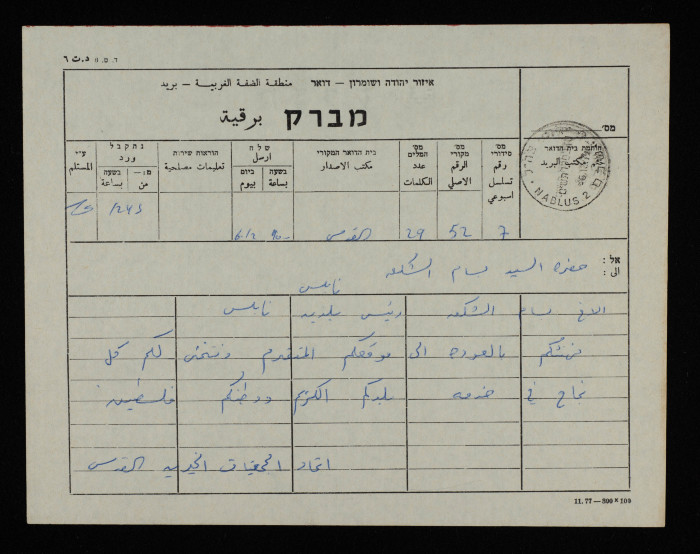 ד. ט. 11 د.ت ٦
איזור יהודה ושומרון — דואר منطقة الضفة الغربية — بريد
מברק برقية
מס׳
חותמת בית הדואר
ختم مكتب البريد
NABLUS 2
מס׳ סידורי רقم تسلسل اسبوعي
מס׳ מקורי الرقم الاصلي
מס׳ המלים عدد الكلمات
בית הדואר המקורי مكتب الاصدار
שלח ارسل
בשעה بساعة
ביום بيوم
הוראות שירות تعليمات مصلحية
נתקבל ورد
מ: — من
בשעה بساعة
ע״י المستلم
7 52 29 القدس 90- 6/2 1245
אל : الى :
حضرة السيد بسام الشكعة نابلس
الاخ بسام الشكعة رئيس بلدية نابلس
نهنئكم بالعودة الى موقعكم المتقدم ونتمنى لكم كل
نجاح في خدمة بلدكم الكريم ووطنكم فلسطين
اتحاد الجمعيات الخيرية القدس
11.77—300×100